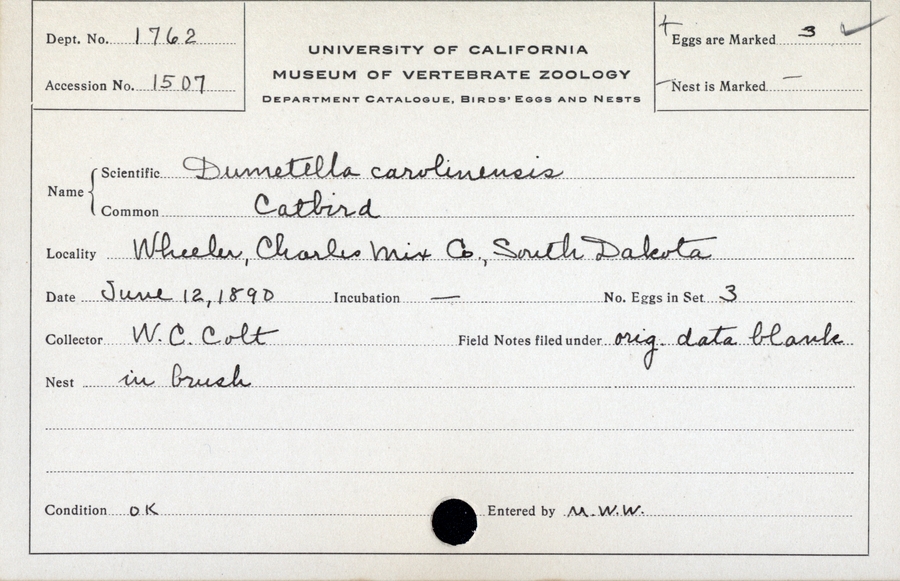 Dept. No. 1762
Accession No. 1507
UNIVERSITY OF CALIFORNIA
MUSEUM OF VERTEBRATE ZOOLOGY
DEPARTMENT CATALOGUE, BIRDS' EGGS AND NESTS
Eggs are Marked 3 ✓
Nest is Marked —
Name
Scientific Dumetella carolinensis
Common Catbird
Locality Wheeler, Charles Mix Co., South Dakota
Date June 12, 1890 Incubation — No. Eggs in Set 3
Collector W. C. Colt Field Notes filed under orig. data blank
Nest in brush
Condition OK Entered by M.W.W.